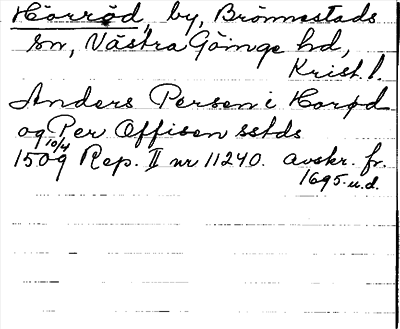 Härröd, by, Brönnestads
sn, Västra Göinge hd,
Krist. l.
Anders Persen i Horød
og Per Offisen sstds
1509 10/4 Rep. II nr 11240. avskr. fr.
1695. u.d.